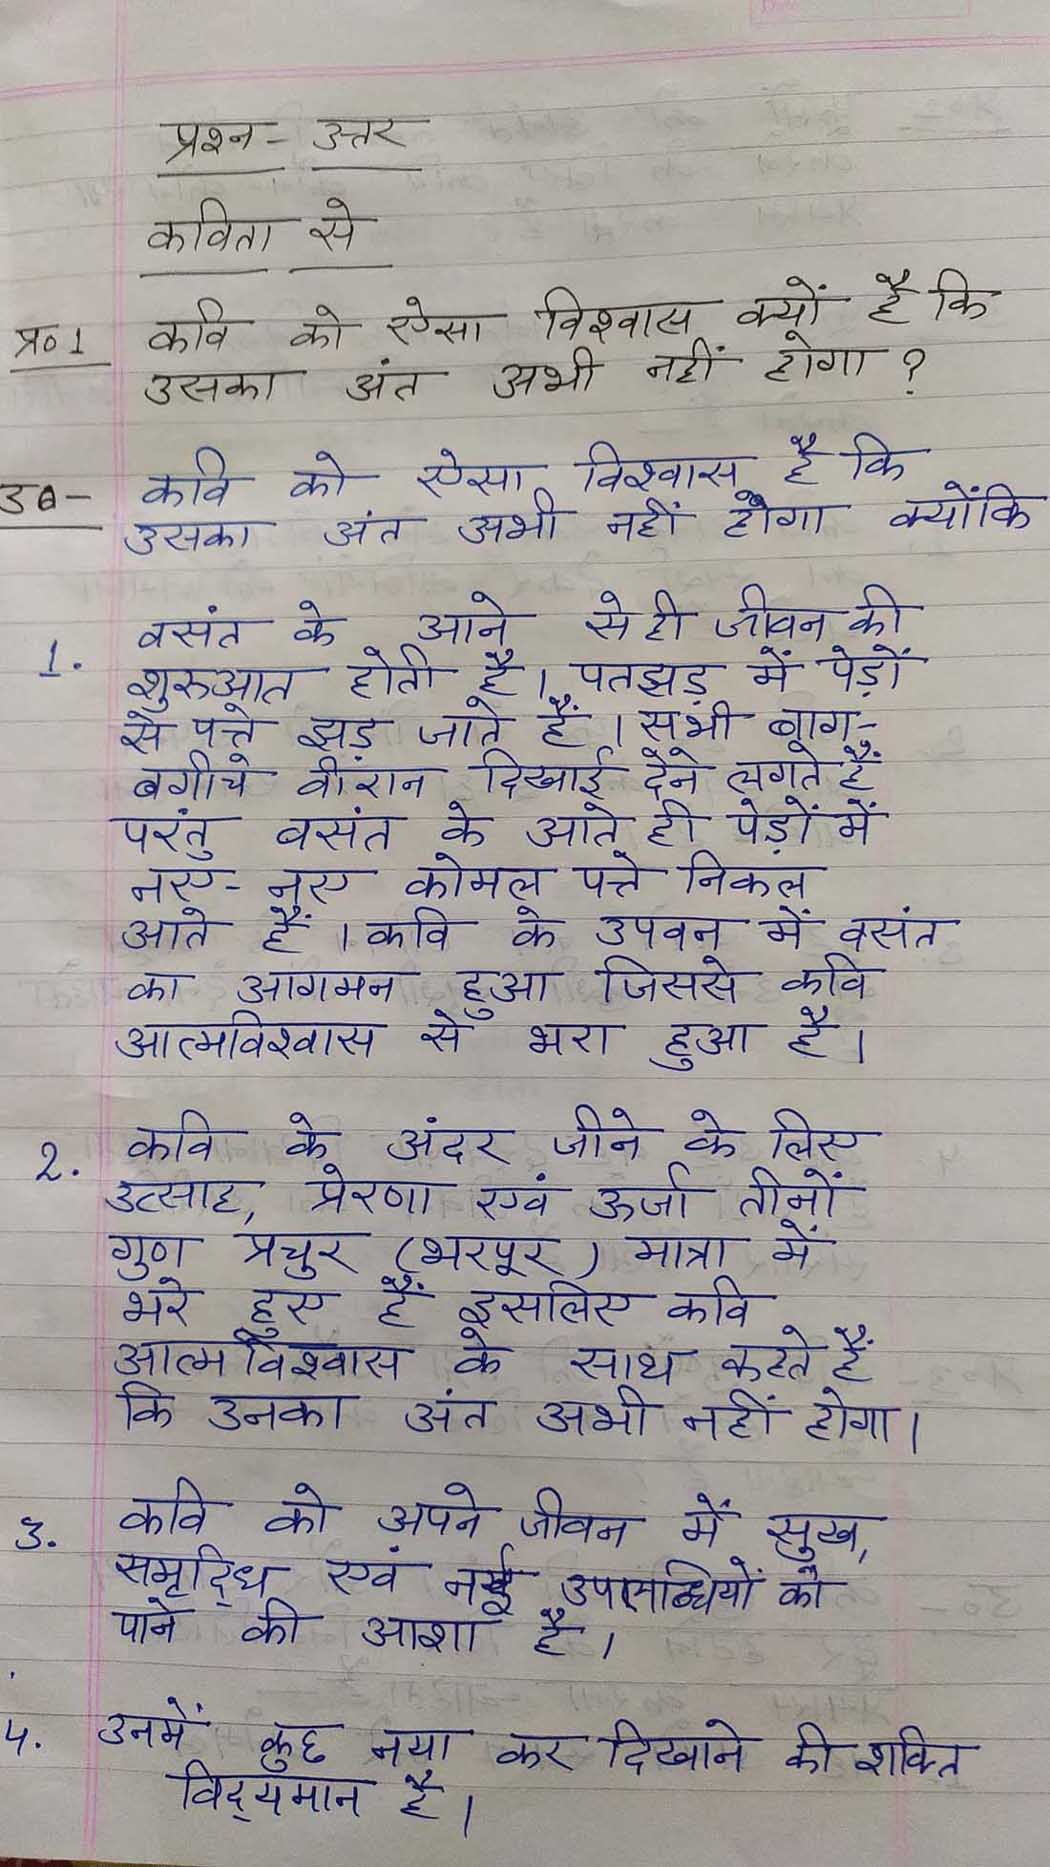 प्रश्न - उत्तर
कविता से
प्र० 1 कवि को ऐसा विश्वास क्यों है कि
उसका अंत अभी नहीं होगा ?
उ०- कवि को ऐसा विश्वास है कि
उसका अंत अभी नहीं होगा क्योंकि
1. वसंत के आने से ही जीवन की
शुरुआत होती है। पतझड़ में पेड़ों
से पत्ते झड़ जाते हैं। सभी बाग-
बगीचे वीरान दिखाई देने लगते हैं
परंतु वसंत के आते ही पेड़ों में
नए- नए कोमल पत्ते निकल
आते हैं। कवि के उपवन में वसंत
का आगमन हुआ जिससे कवि
आत्मविश्वास से भरा हुआ है।
2. कवि के अंदर जीने के लिए
उत्साह, प्रेरणा एवं ऊर्जा तीनों
गुण प्रचुर (भरपूर) मात्रा में
भरे हुए हैं इसलिए कवि
आत्मविश्वास के साथ कहते हैं
कि उनका अंत अभी नहीं होगा।
3. कवि को अपने जीवन में सुख,
समृद्धि एवं नई उपलब्धियों को
पाने की आशा है।
4. उनमें कुछ नया कर दिखाने की शक्ति
विद्यमान है।